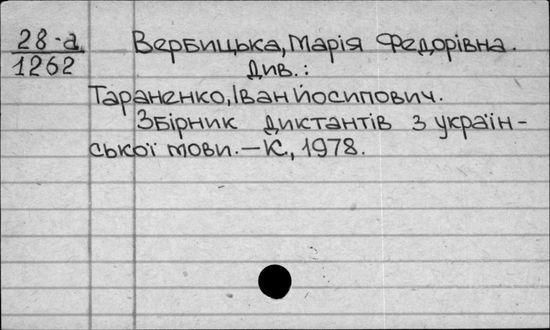 28-а
1262
Вербицька, Марія Федорівна.
Див.:
Тараненко, Іван Йосипович.
Збірник диктантів з україн-
ської мови. — К., 1978.